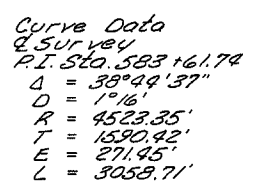 Curve Data
℄ Survey
P.I. Sta. 583 +61.74
Δ = 38°44'37"
D = 1°16'
R = 4523.35'
T = 1590.42'
E = 271.45'
L = 3058.71'